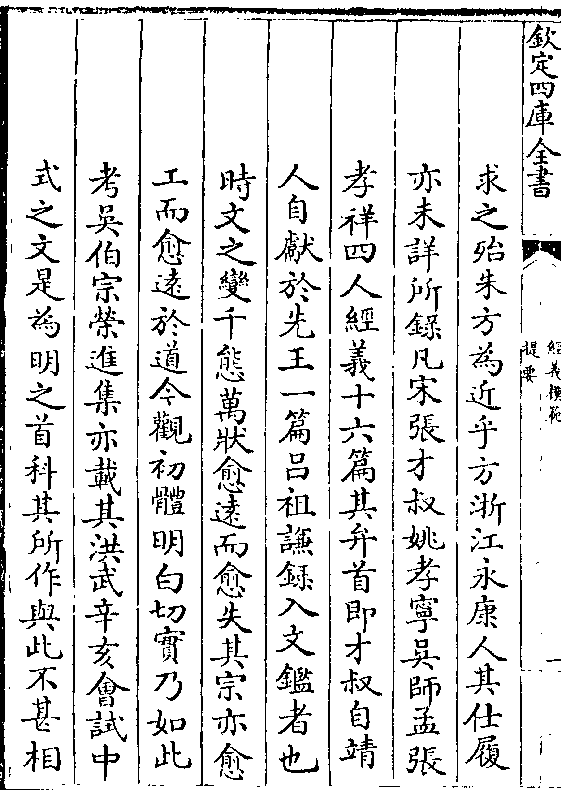 欽定四庫全書
經義模範
提要
求之殆朱方為近乎方浙江永康人其仕履
亦未詳所錄凡宋張才叔姚孝寧吳師孟張
孝祥四人經義十六篇其弁首即才叔自靖
人自獻於先王一篇呂祖謙録入文鑑者也
時文之變千態萬狀愈遠而愈失其宗亦愈
工而愈遠於道今觀初體明白切實乃如此
考吳伯宗榮進集亦載其洪武辛亥會試中
式之文是為明之首科其所作與此不甚相